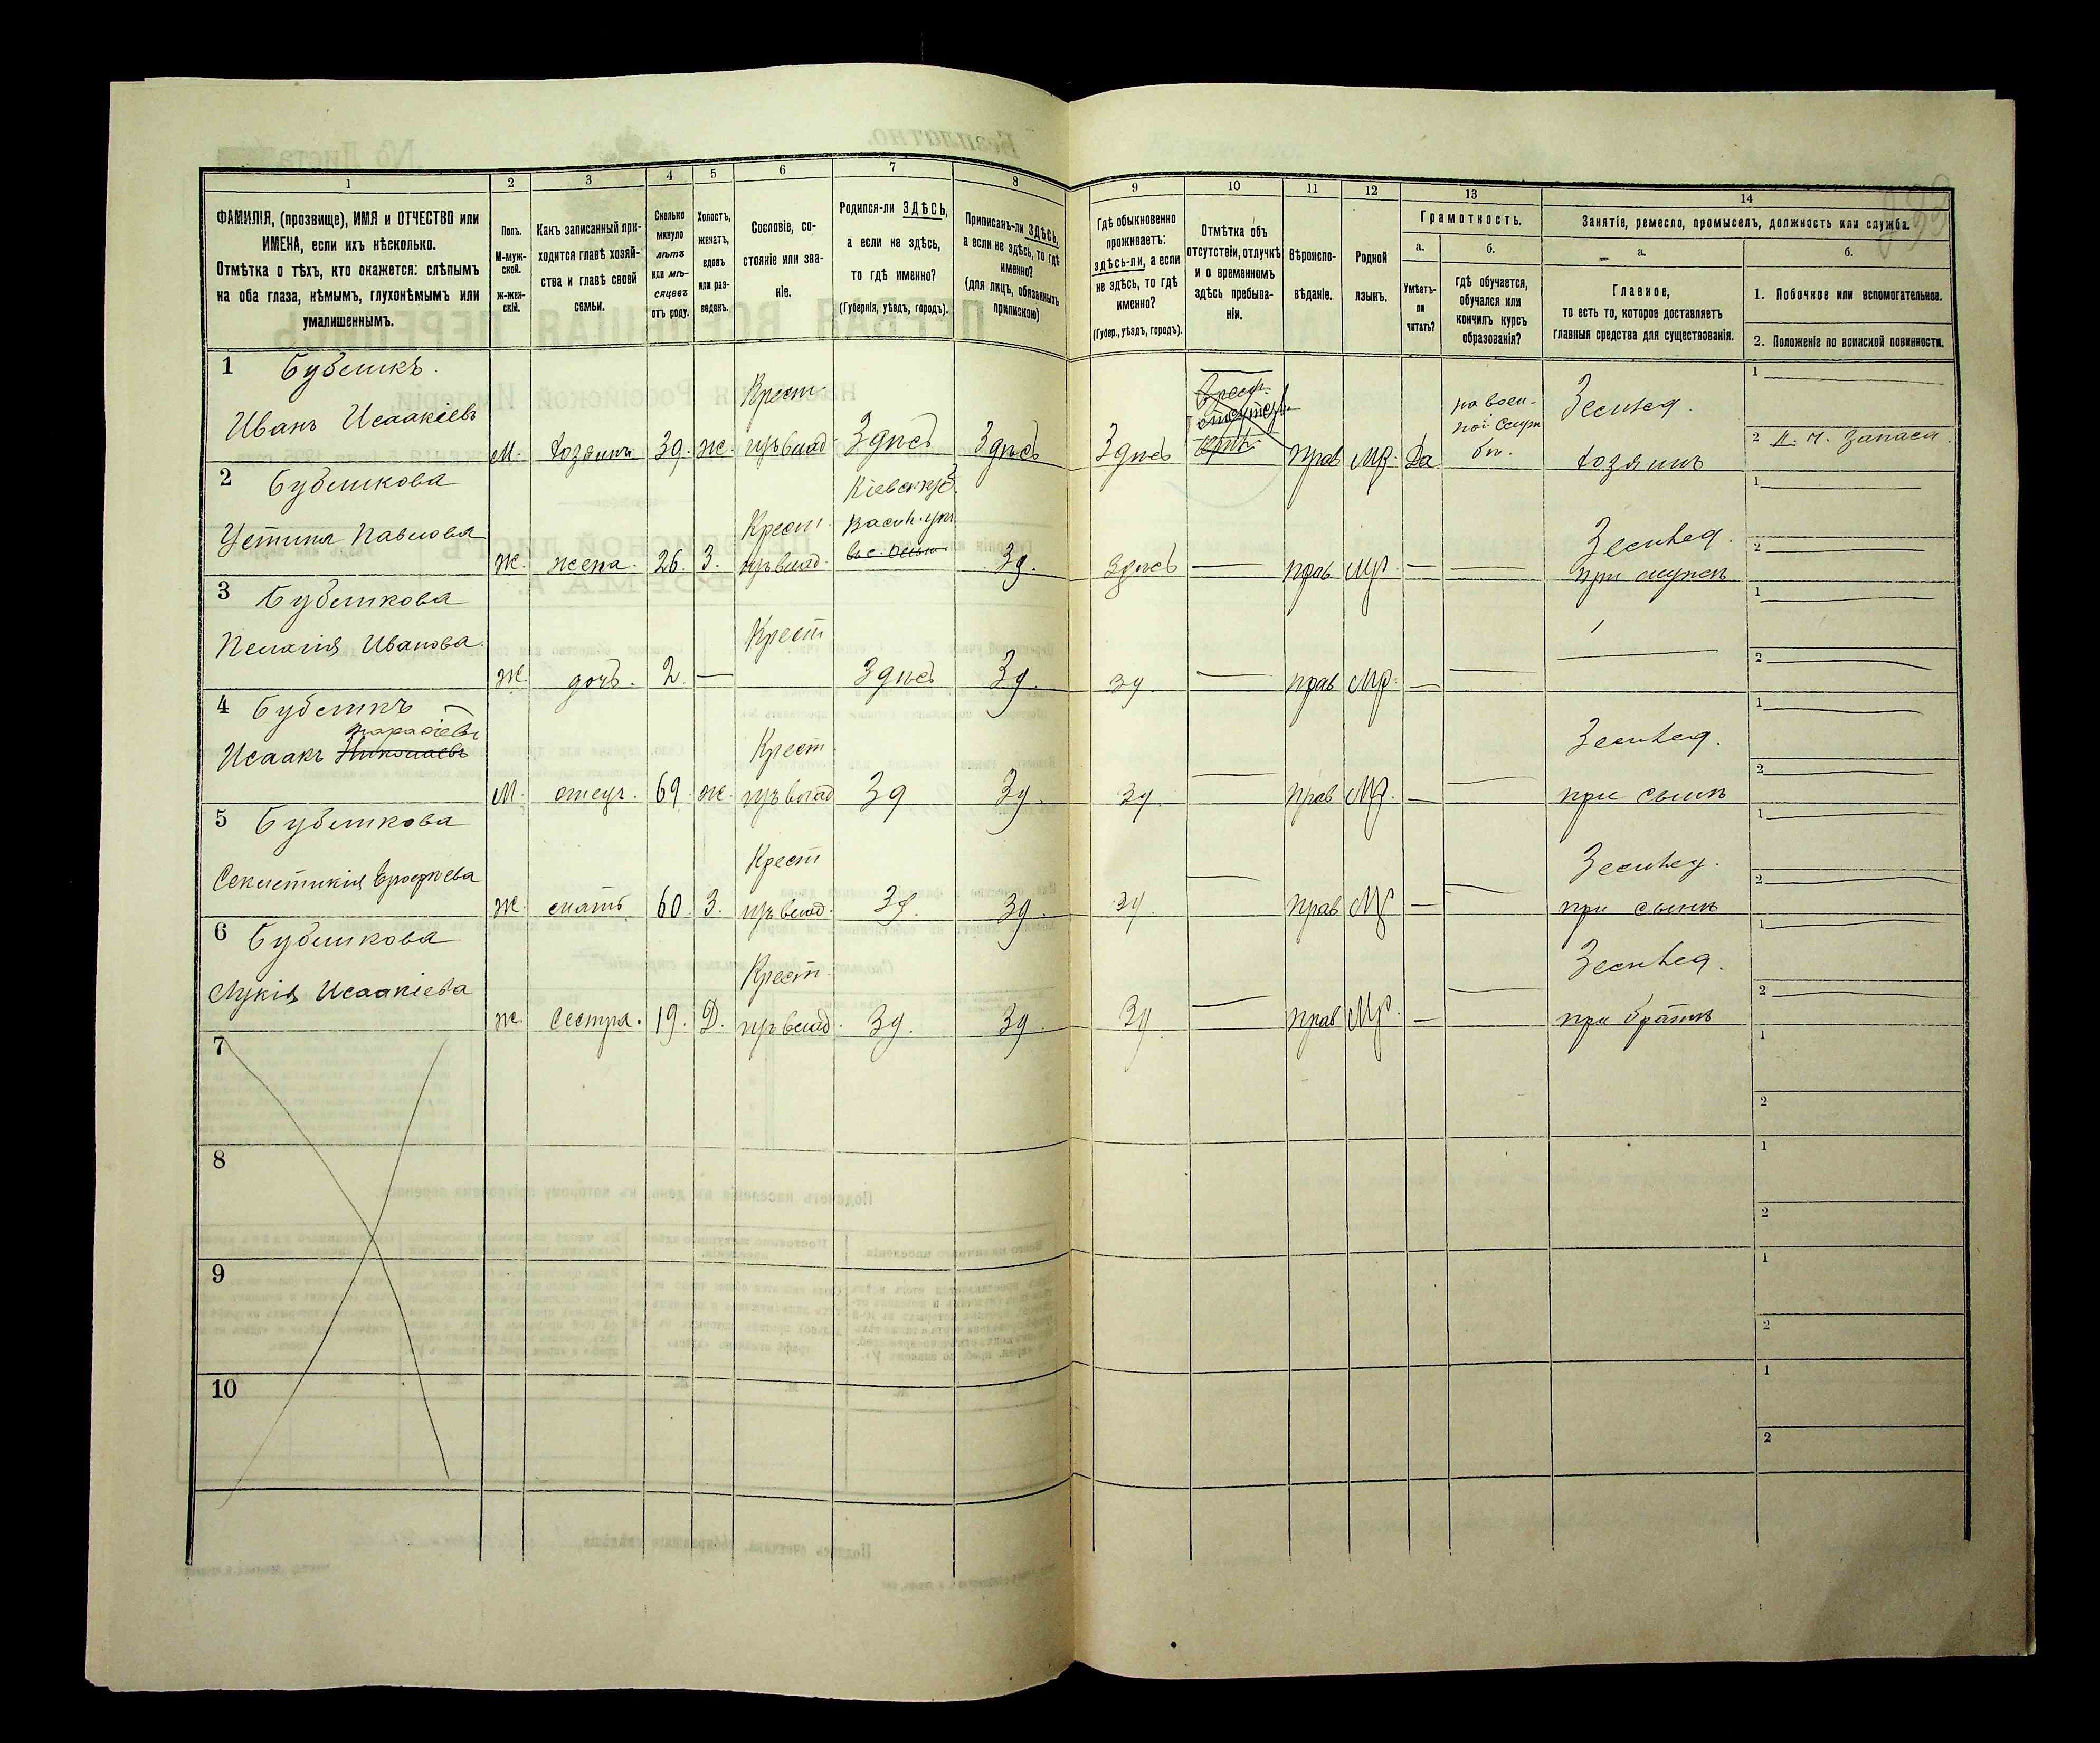 1
2
3
4
5
6
7
8
9
10
11
12
13
14
ФАМИЛІЯ, (прозвище), ИМЯ и ОТЧЕСТВО или
ИМЕНА, если ихъ нѣсколько.
Отмѣтка о тѣхъ, кто окажется: слѣпымъ
на оба глаза, нѣмымъ, глухонѣмымъ или
умалишеннымъ.
Полъ.
М-муж-
ской.
ж-жен-
скій.
Какъ записанный при-
ходится главѣ хозяй-
ства и главѣ своей
семьи.
Сколько
минуло
лѣтъ
или мѣ-
сяцевъ
отъ роду.
Холостъ,
женатъ,
вдовъ
или раз-
веденъ.
Сословіе, со-
стояніе или зва-
ніе.
Родился-ли ЗДѢСЬ,
а если не здѣсь,
то гдѣ именно?
(Губернія, уѣздъ, городъ).
Приписанъ-ли ЗДѢСЬ,
а если не здѣсь, то гдѣ
именно?
(для лицъ, обязанныхъ
припискою)
Гдѣ обыкновенно
проживаетъ:
здѣсь-ли, а если
не здѣсь, то гдѣ
именно?
(Губер., уѣздъ, городъ).
Отмѣтка объ
отсутствіи, отлучкѣ
и о временномъ
здѣсь пребыва-
ніи.
Вѣроиспо-
вѣданіе.
Родной
языкъ.
Грамотность.
а.
Умѣетъ-
ли
читать?
б.
гдѣ обучается,
обучался или
кончилъ курсъ
образованія?
Занятіе, ремесло, промыселъ, должность или служба.
а.
Главное,
то есть то, которое доставляетъ
главныя средства для существованія.
б.
1. Побочное или вспомогательное.
2. Положеніе по воинской повинности.
1 Бубликъ.
Иванъ Исаакіевъ
М. хозяинъ 39. ж. Крест. изъ влад. Здѣсь Здѣсь Здѣсь прав Мр. Да
на воен-
ной служ
бѣ.
Землед.
хозяинъ
1
2 запаса
2 Бубликова
Устина Павлова
Ж. жена. 26. З. Крест. изъ влад. Кіевск. губ. Васил. уѣз. Зд. Здѣсь прав Мр.
Землед.
при мужѣ
1
2
3 Бубликова
Пелагія Иванова.
Ж. дочь. 2. Крест Здѣсь Зд. Зд. прав Мр.
1
2
4 Бубликъ
Исаакъ Николаевъ
М. отецъ. 69. ж. Крест. изъ влад Зд Зд. Зд. прав Мр.
Землед.
при сынѣ
1
2
5 Бубликова
Ж. мать 60. З. Крест изъ влад. Зд. Зд. Зд. прав Мр
Землед.
при сынѣ
1
2
6 Бубликова
Лукія Исаакіева
ж. Сестра. 19. Д. Крест. изъ влад. Зд. Зд. Зд. прав Мр.
Землед.
при братѣ
1
2
7
1
2
8
1
2
9
1
2
10
1
2